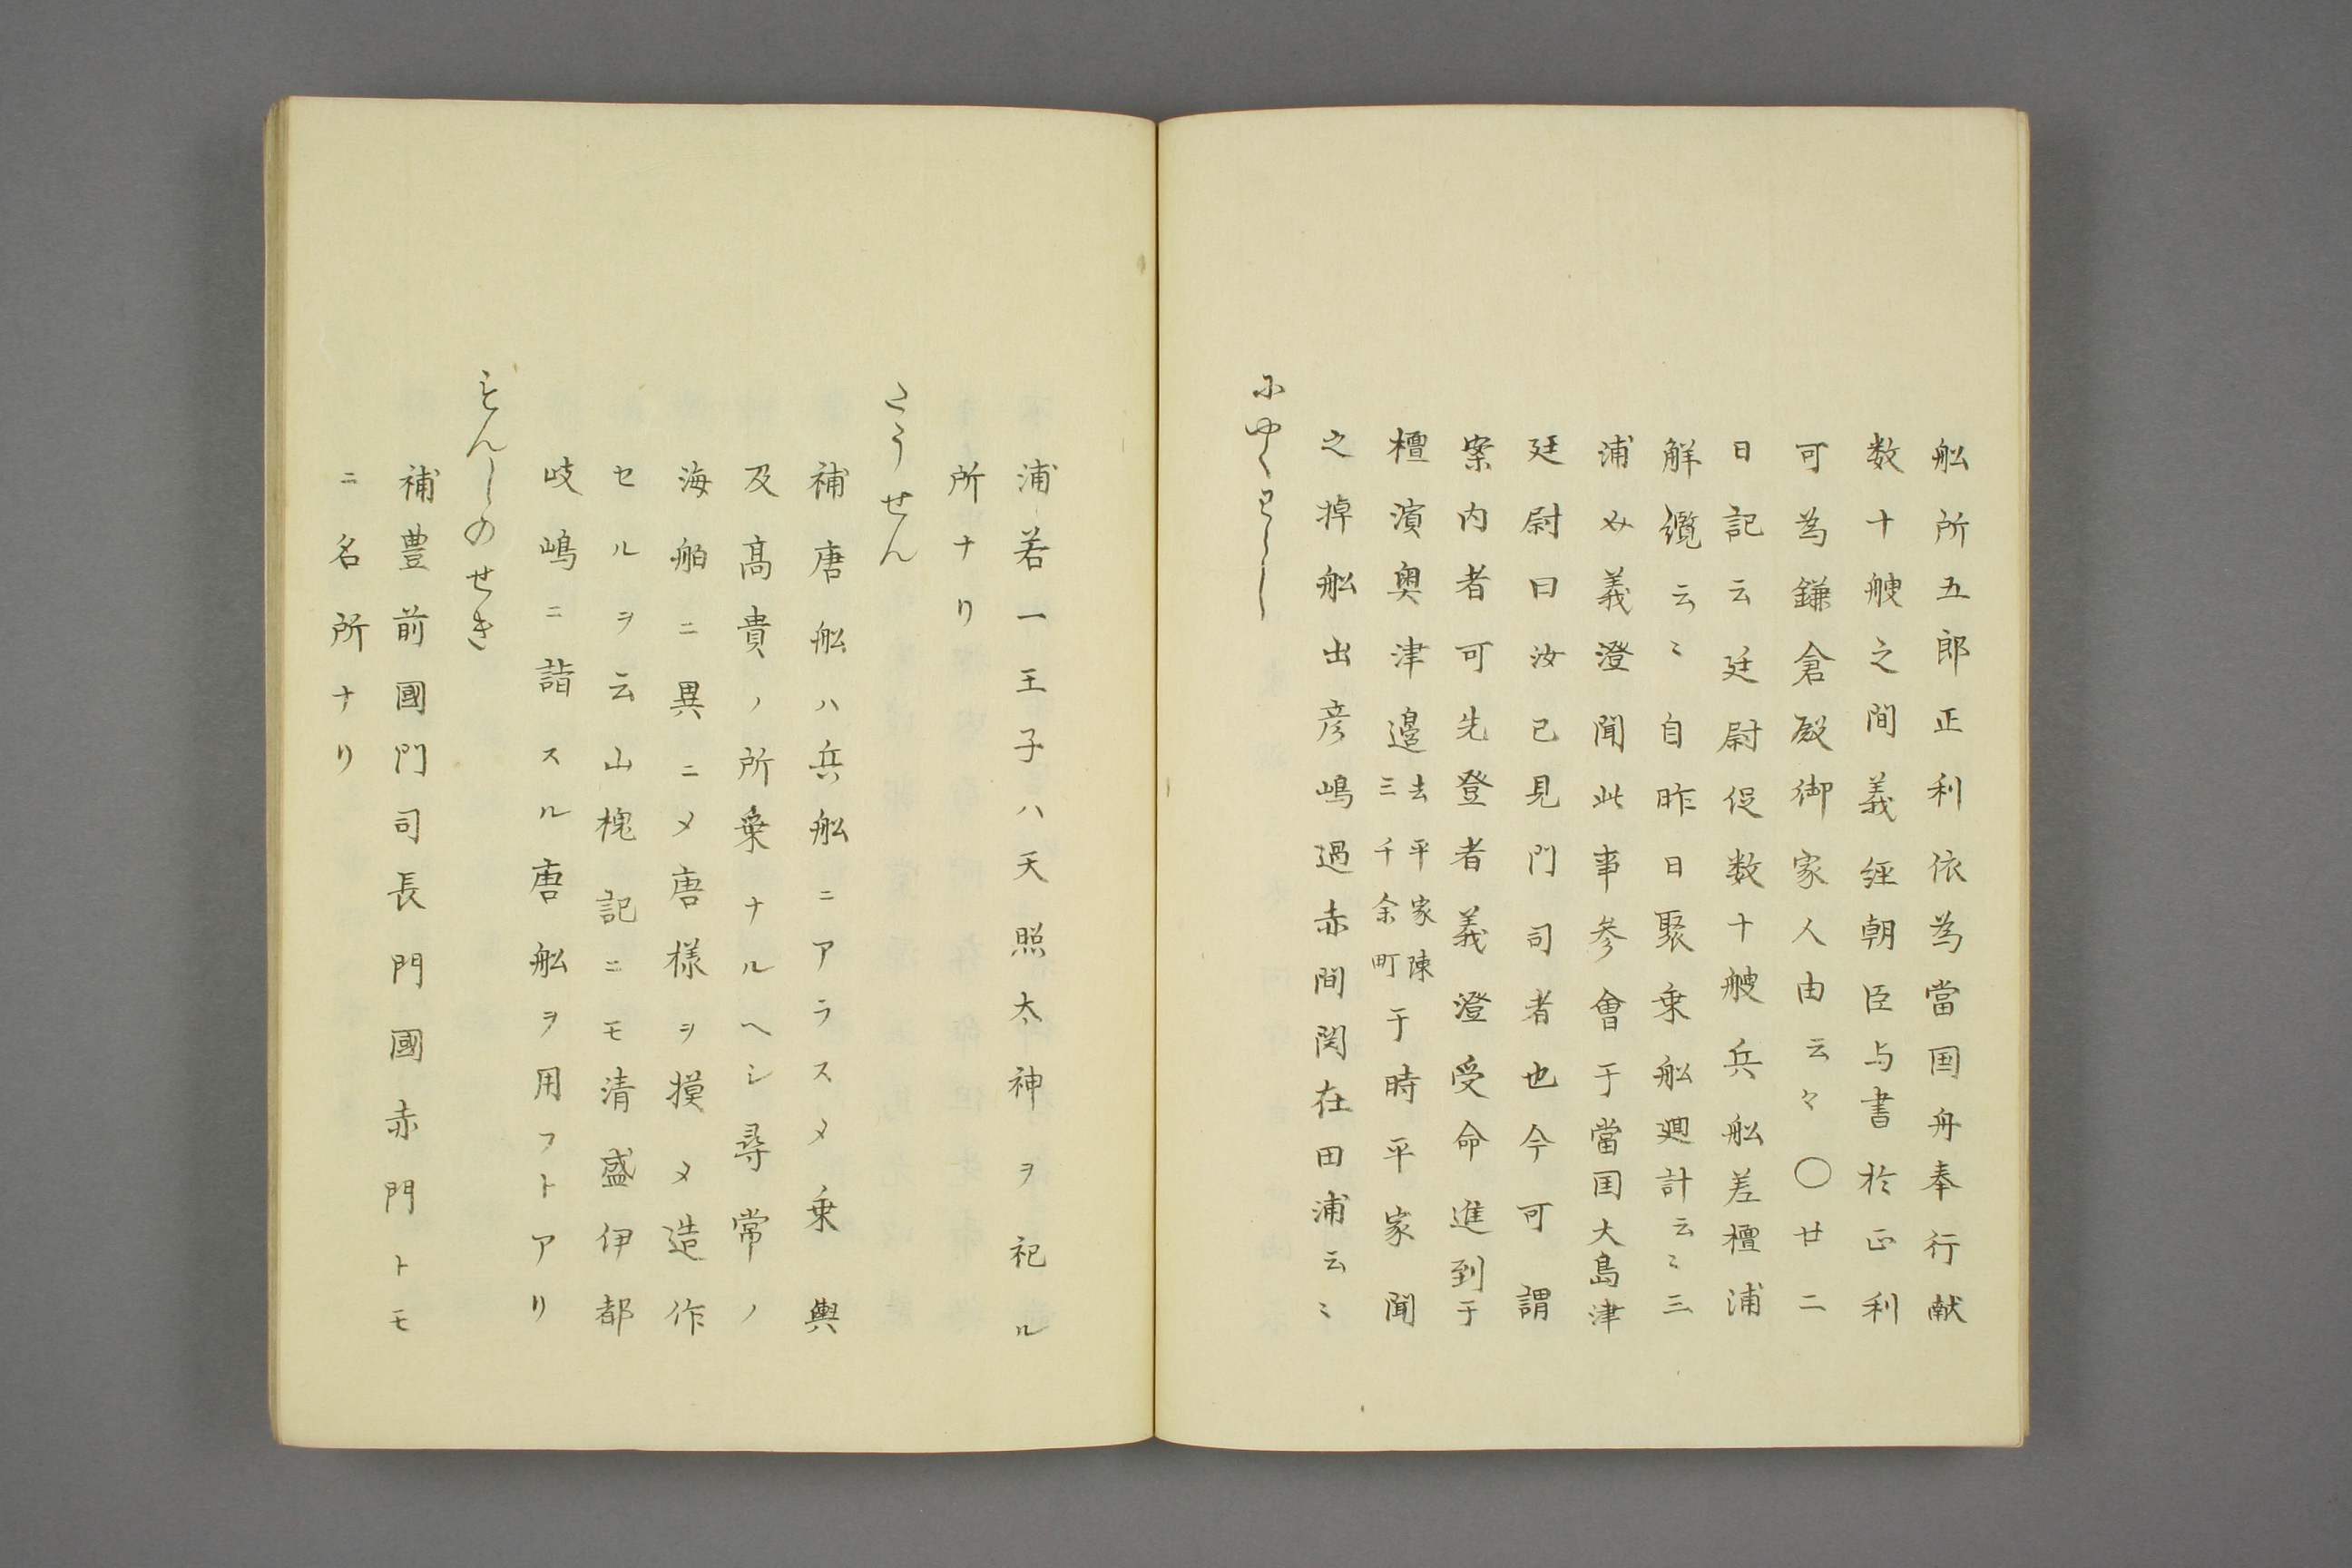 舩所五郎正利依為當国舟奉行献
数十艘之間義経朝臣与書於正利
可為鎌倉殿御家人由云々〇廿二
日記云廷尉促数十艘兵舩差檀浦
解纜云〻自昨日聚乗舩廻計云〻三
浦介義澄聞此事参會于當国大島津
廷尉曰汝已見門司者也今可謂
案内者可先登者義澄受命進到于
檀濱奥津邉去平家陳三千余町于時平家聞
之掉舩出彦嶋過赤間関在田浦云〻
にやくわうし
浦若一王子ハ天照太神ヲ祀ル
所ナリ
たうせん
補唐舩ハ兵舩ニアラスメ乗輿
及髙貴ノ所乗ナルヘシ尋常ノ
海舶ニ異ニメ唐様ヲ摸メ造作
セルヲ云山槐記ニモ清盛伊都
岐嶋ニ詣スル唐舩ヲ用フトアリ
もんしのせき
補豊前國門司長門國赤門トモ
ニ名所ナリ